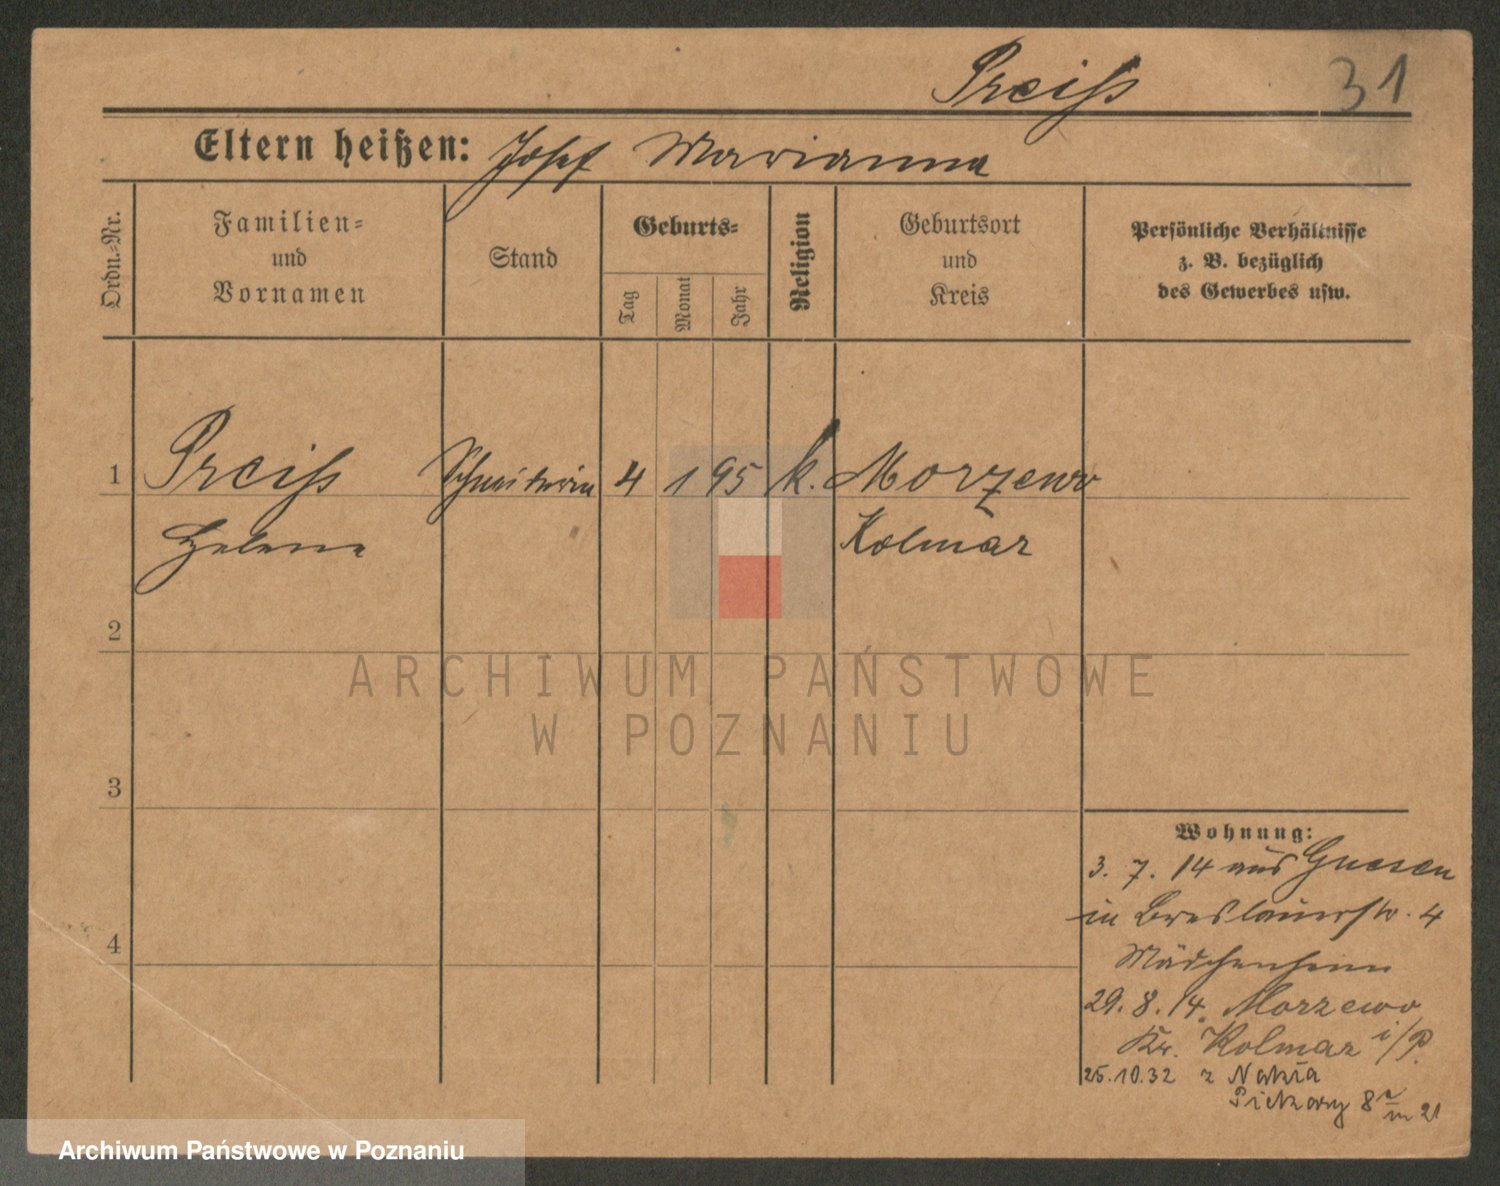 Preiß 31
Eltern heißen: Josef Marianna
Ordn.-Nr.
Familien-
und
Vornamen
Stand
Geburts-
Tag
Monat
Jahr
Religion
Geburtsort
und
Kreis
Persönliche Verhältnisse
z. B. bezüglich
des Gewerbes usw.
1 Preiß Schneiderin 4 1 95 k. Morzewo
Helene Kolmar
2
ARCHIWUM PAŃSTWOWE
W POZNANIU
3
Wohnung:
3. 7. 14 aus Gnesen
in Breslauerstr. 4
4
Mädchenheim
29. 8. 14. Morzewo
Kr. Kolmar i/P.
25.10.32 z Nakła
Piekary 8 m 21
Archiwum Państwowe w Poznaniu